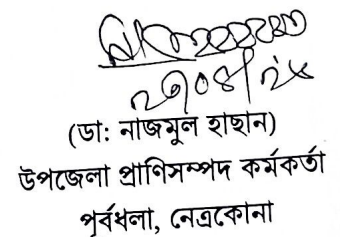 (ডা: নাজমুল হাছান)
উপজেলা প্রাণিসম্পদ কর্মকর্তা
পূর্বধলা, নেত্রকোনা